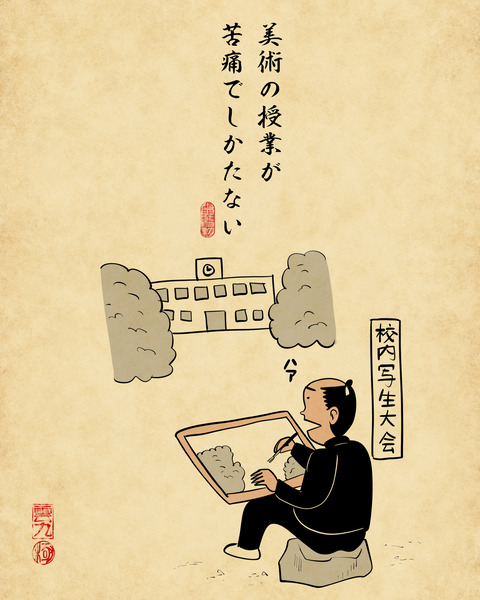 美術の授業が
苦痛でしかたない
ハァ
校内写生大会